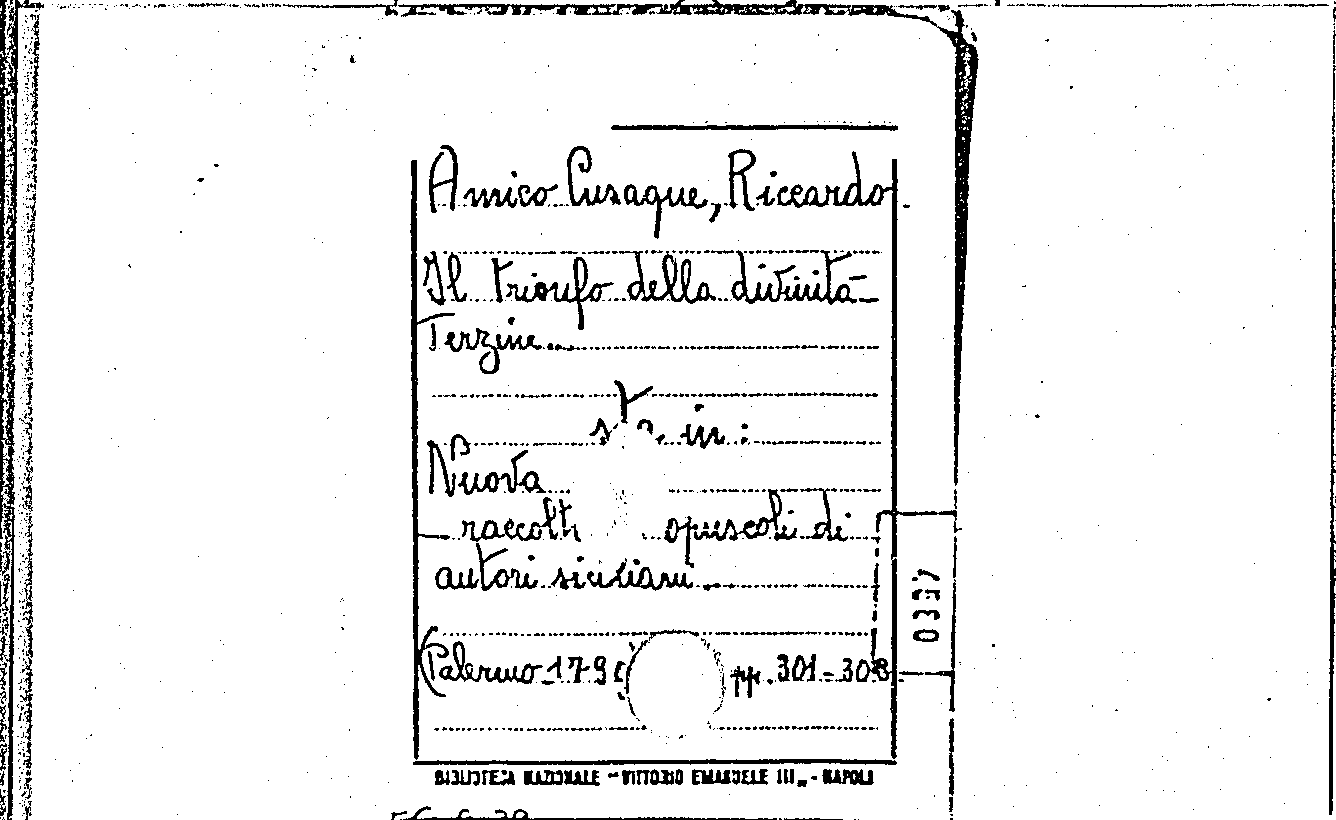 Amico Cusaque, Riccardo.
Il trionfo della divinità_
Terzine...
sta in:
Nuova
raccolt opuscoli di
autori siciliani...
(Palermo_179 pp.301-308
BIBLIOTECA NAZIONALE "VITTORIO EMANUELE III„ - NAPOLI